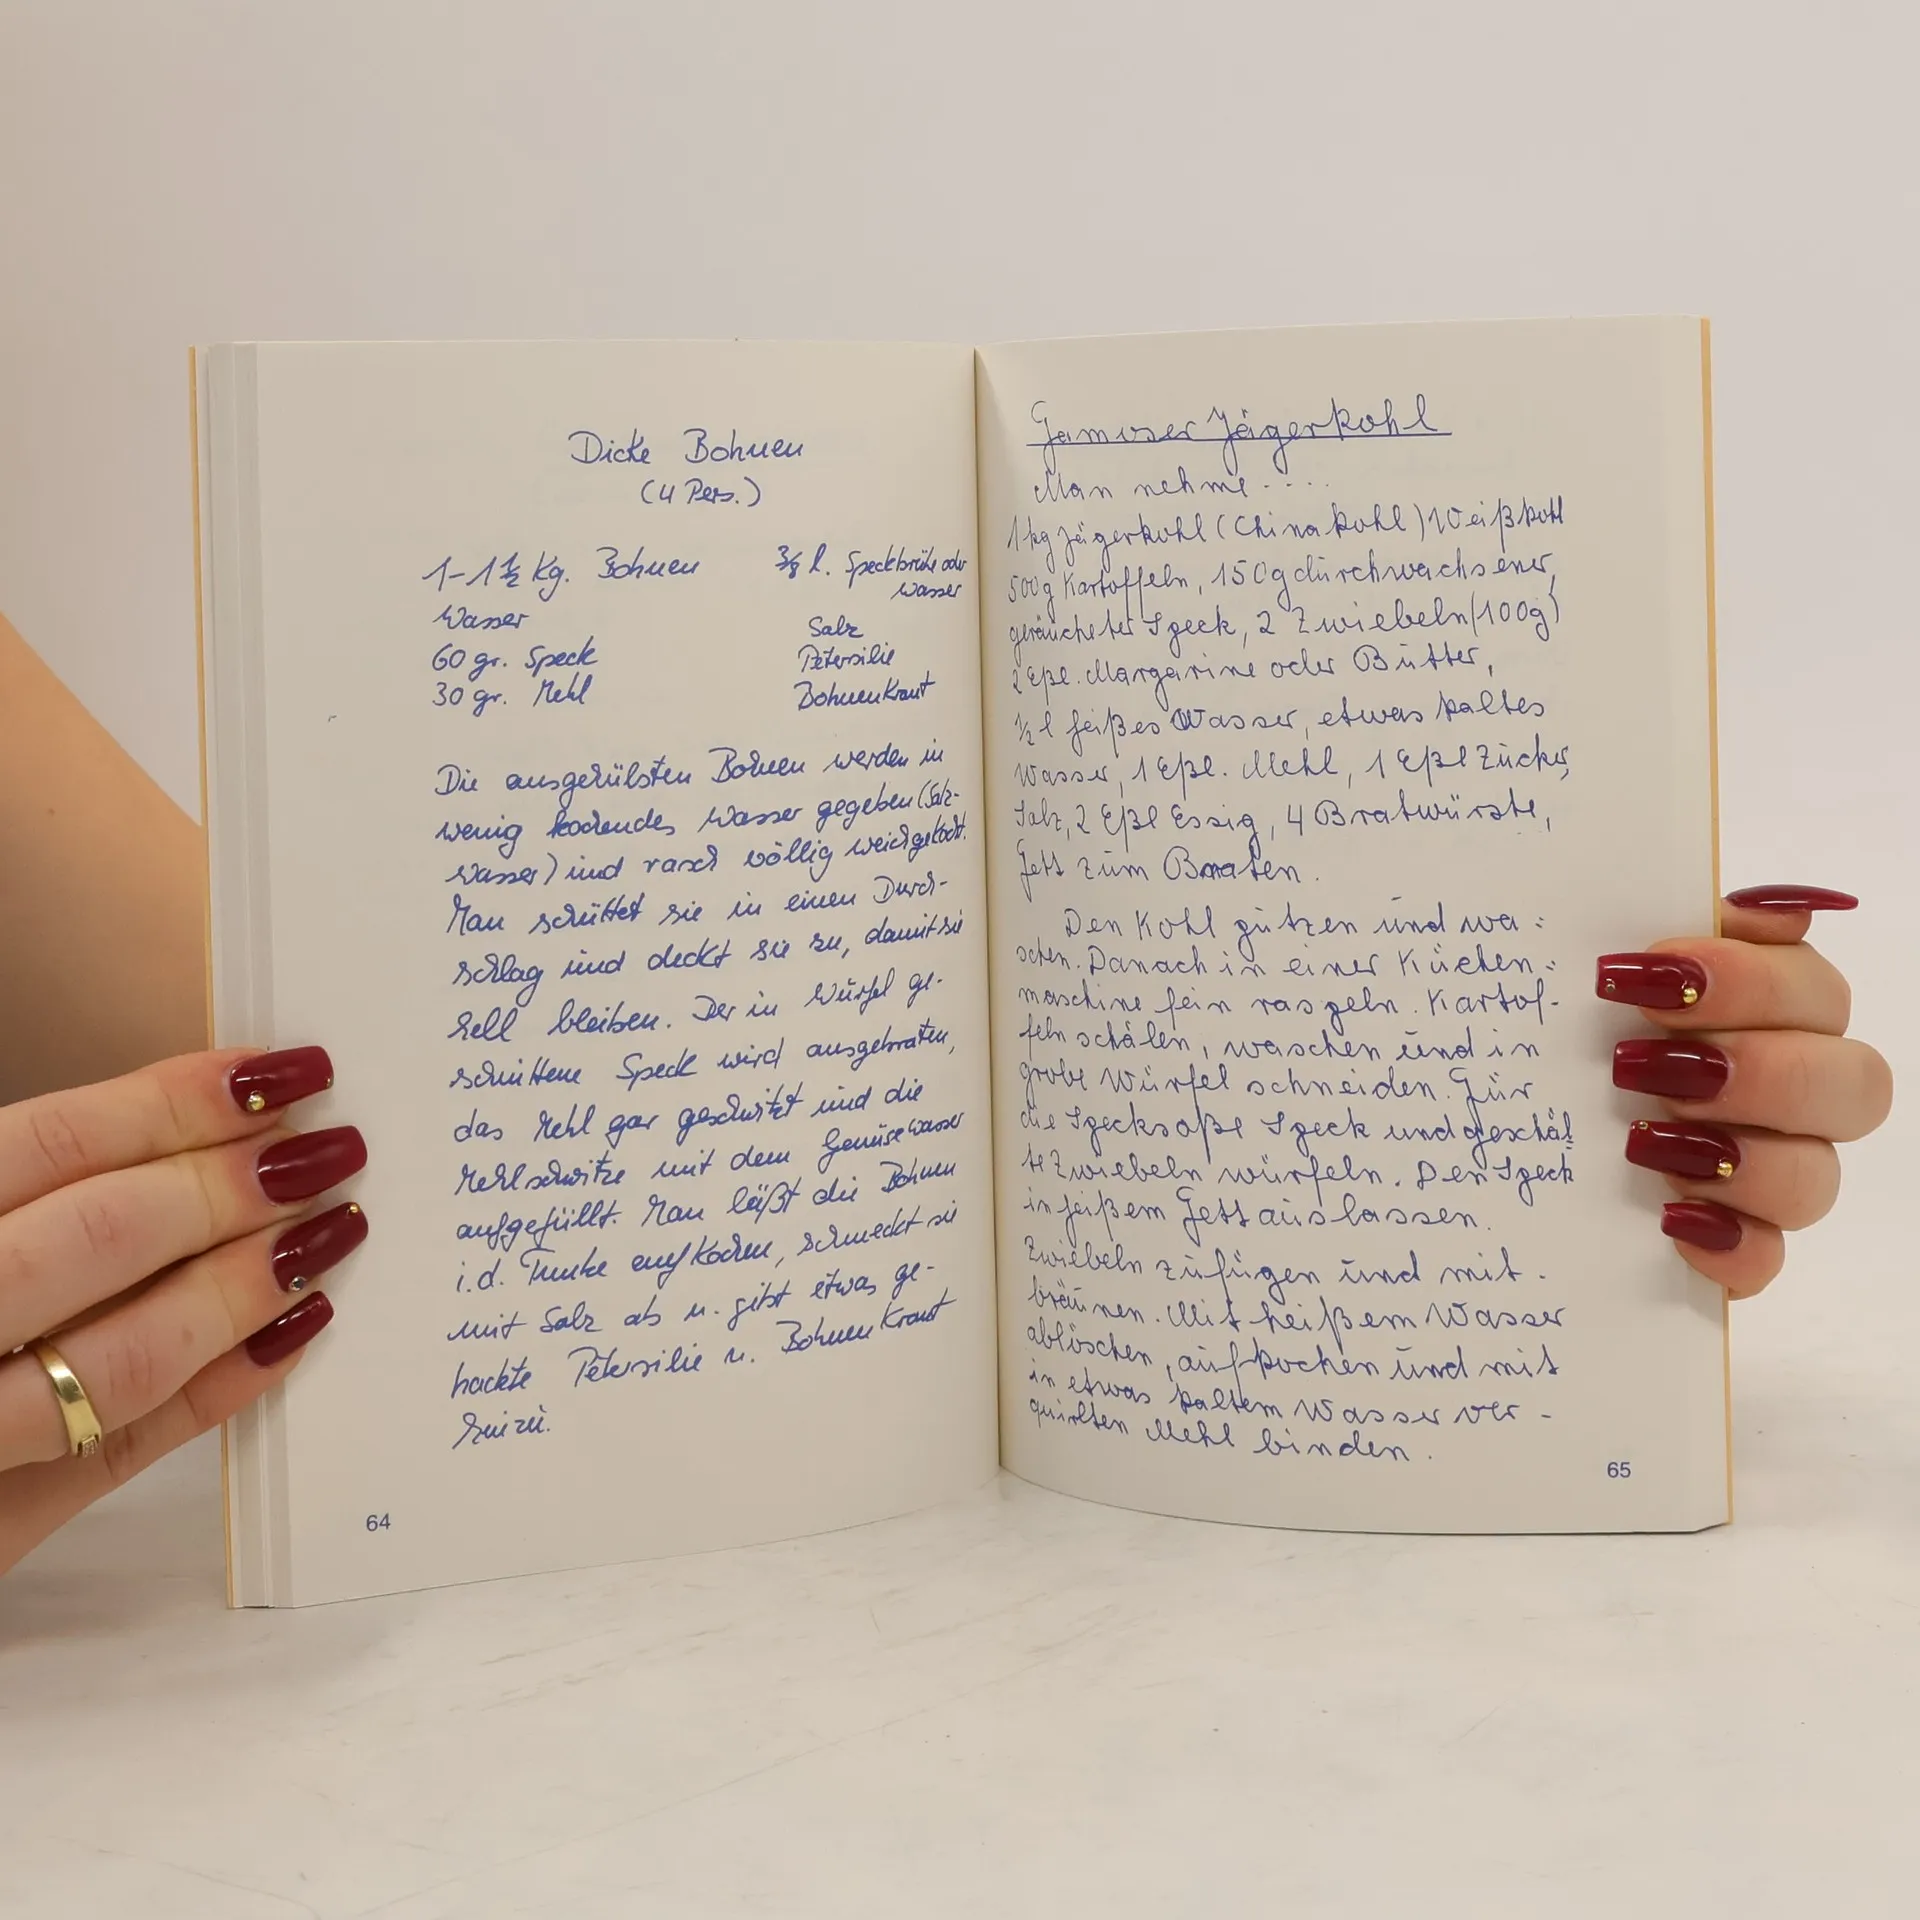 Dicke Bohnen
(4 Pers.)
1-1½ Kg. Bohnen
Wasser
60 gr. Speck
30 gr. Mehl
⅜ l. Speckbrühe oder
Wasser
Salz
Petersilie
BohnenKraut
Die ausgehülsten Bohnen werden in
wenig kochendes Wasser gegeben (Salz-
wasser) und rasch völlig weichgekocht.
Man schüttet sie in einen Durch-
schlag und deckt sie zu, damit sie
hell bleiben. Der in Würfel ge-
schnittene Speck wird ausgebraten,
das Mehl gar geschwitzt und die
Mehlschwitze mit dem Gemüsewasser
aufgefüllt. Man läßt die Bohnen
i.d. Tunke aufkochen, schmeckt sie
mit Salz ab u. gibt etwas ge-
hackte Petersilie u. BohnenKraut
hinzu.
64
Famoser Jägerkohl
Man nehme....
1kg Jägerkohl (Chinakohl) Weißkohl
500g Kartoffeln, 150g durchwachsener,
geräucherter Speck, 2 Zwiebeln (100g)
2 Eßl. Margarine oder Butter,
½ l heißes Wasser, etwas kaltes
Wasser, 1 Eßl. Mehl, 1 Eßl Zucker,
Salz, 2 Eßl Essig, 4 Bratwürste,
Fett zum Braten.
Den Kohl putzen und wa=
schen. Danach in einer Küchen=
maschine fein raspeln. Kartof-
feln schälen, waschen und in
grobe Würfel schneiden. Für
die Specksoße Speck und geschäl=
te Zwiebeln würfeln. Den Speck
in heißem Fett auslassen.
Zwiebeln zufügen und mit-
bräunen. Mit heißem Wasser
ablöschen, aufkochen und mit
in etwas kaltem Wasser ver-
quirlten Mehl binden.
65